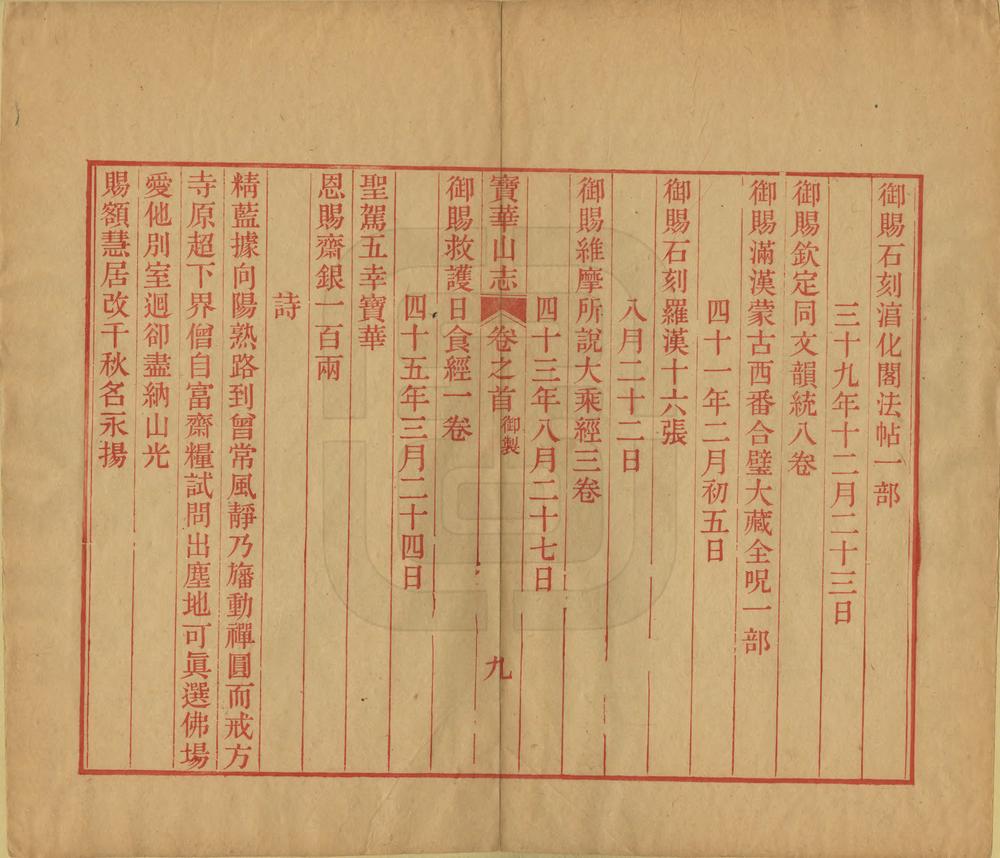 御賜石刻淳化閣法帖一部
三十九年十二月二十三日
御賜欽定同文韻統八卷
御賜滿漢蒙古西番合璧大藏全呪一部
四十一年二月初五日
御賜石刻羅漢十六張
八月二十二日
御賜維摩所說大乘經三卷
四十三年八月二十七日
寶華山志 卷之首 御製 九
御賜救護日食經一卷
四十五年三月二十四日
聖駕五幸寶華
恩賜齋銀一百兩
詩
精藍據向陽熟路到曾常風靜乃旛動禪圓而戒方
寺原超下界僧自富齋糧試問出塵地可眞選佛場
愛他別室迴卻盡納山光
賜額慧居改千秋名永揚